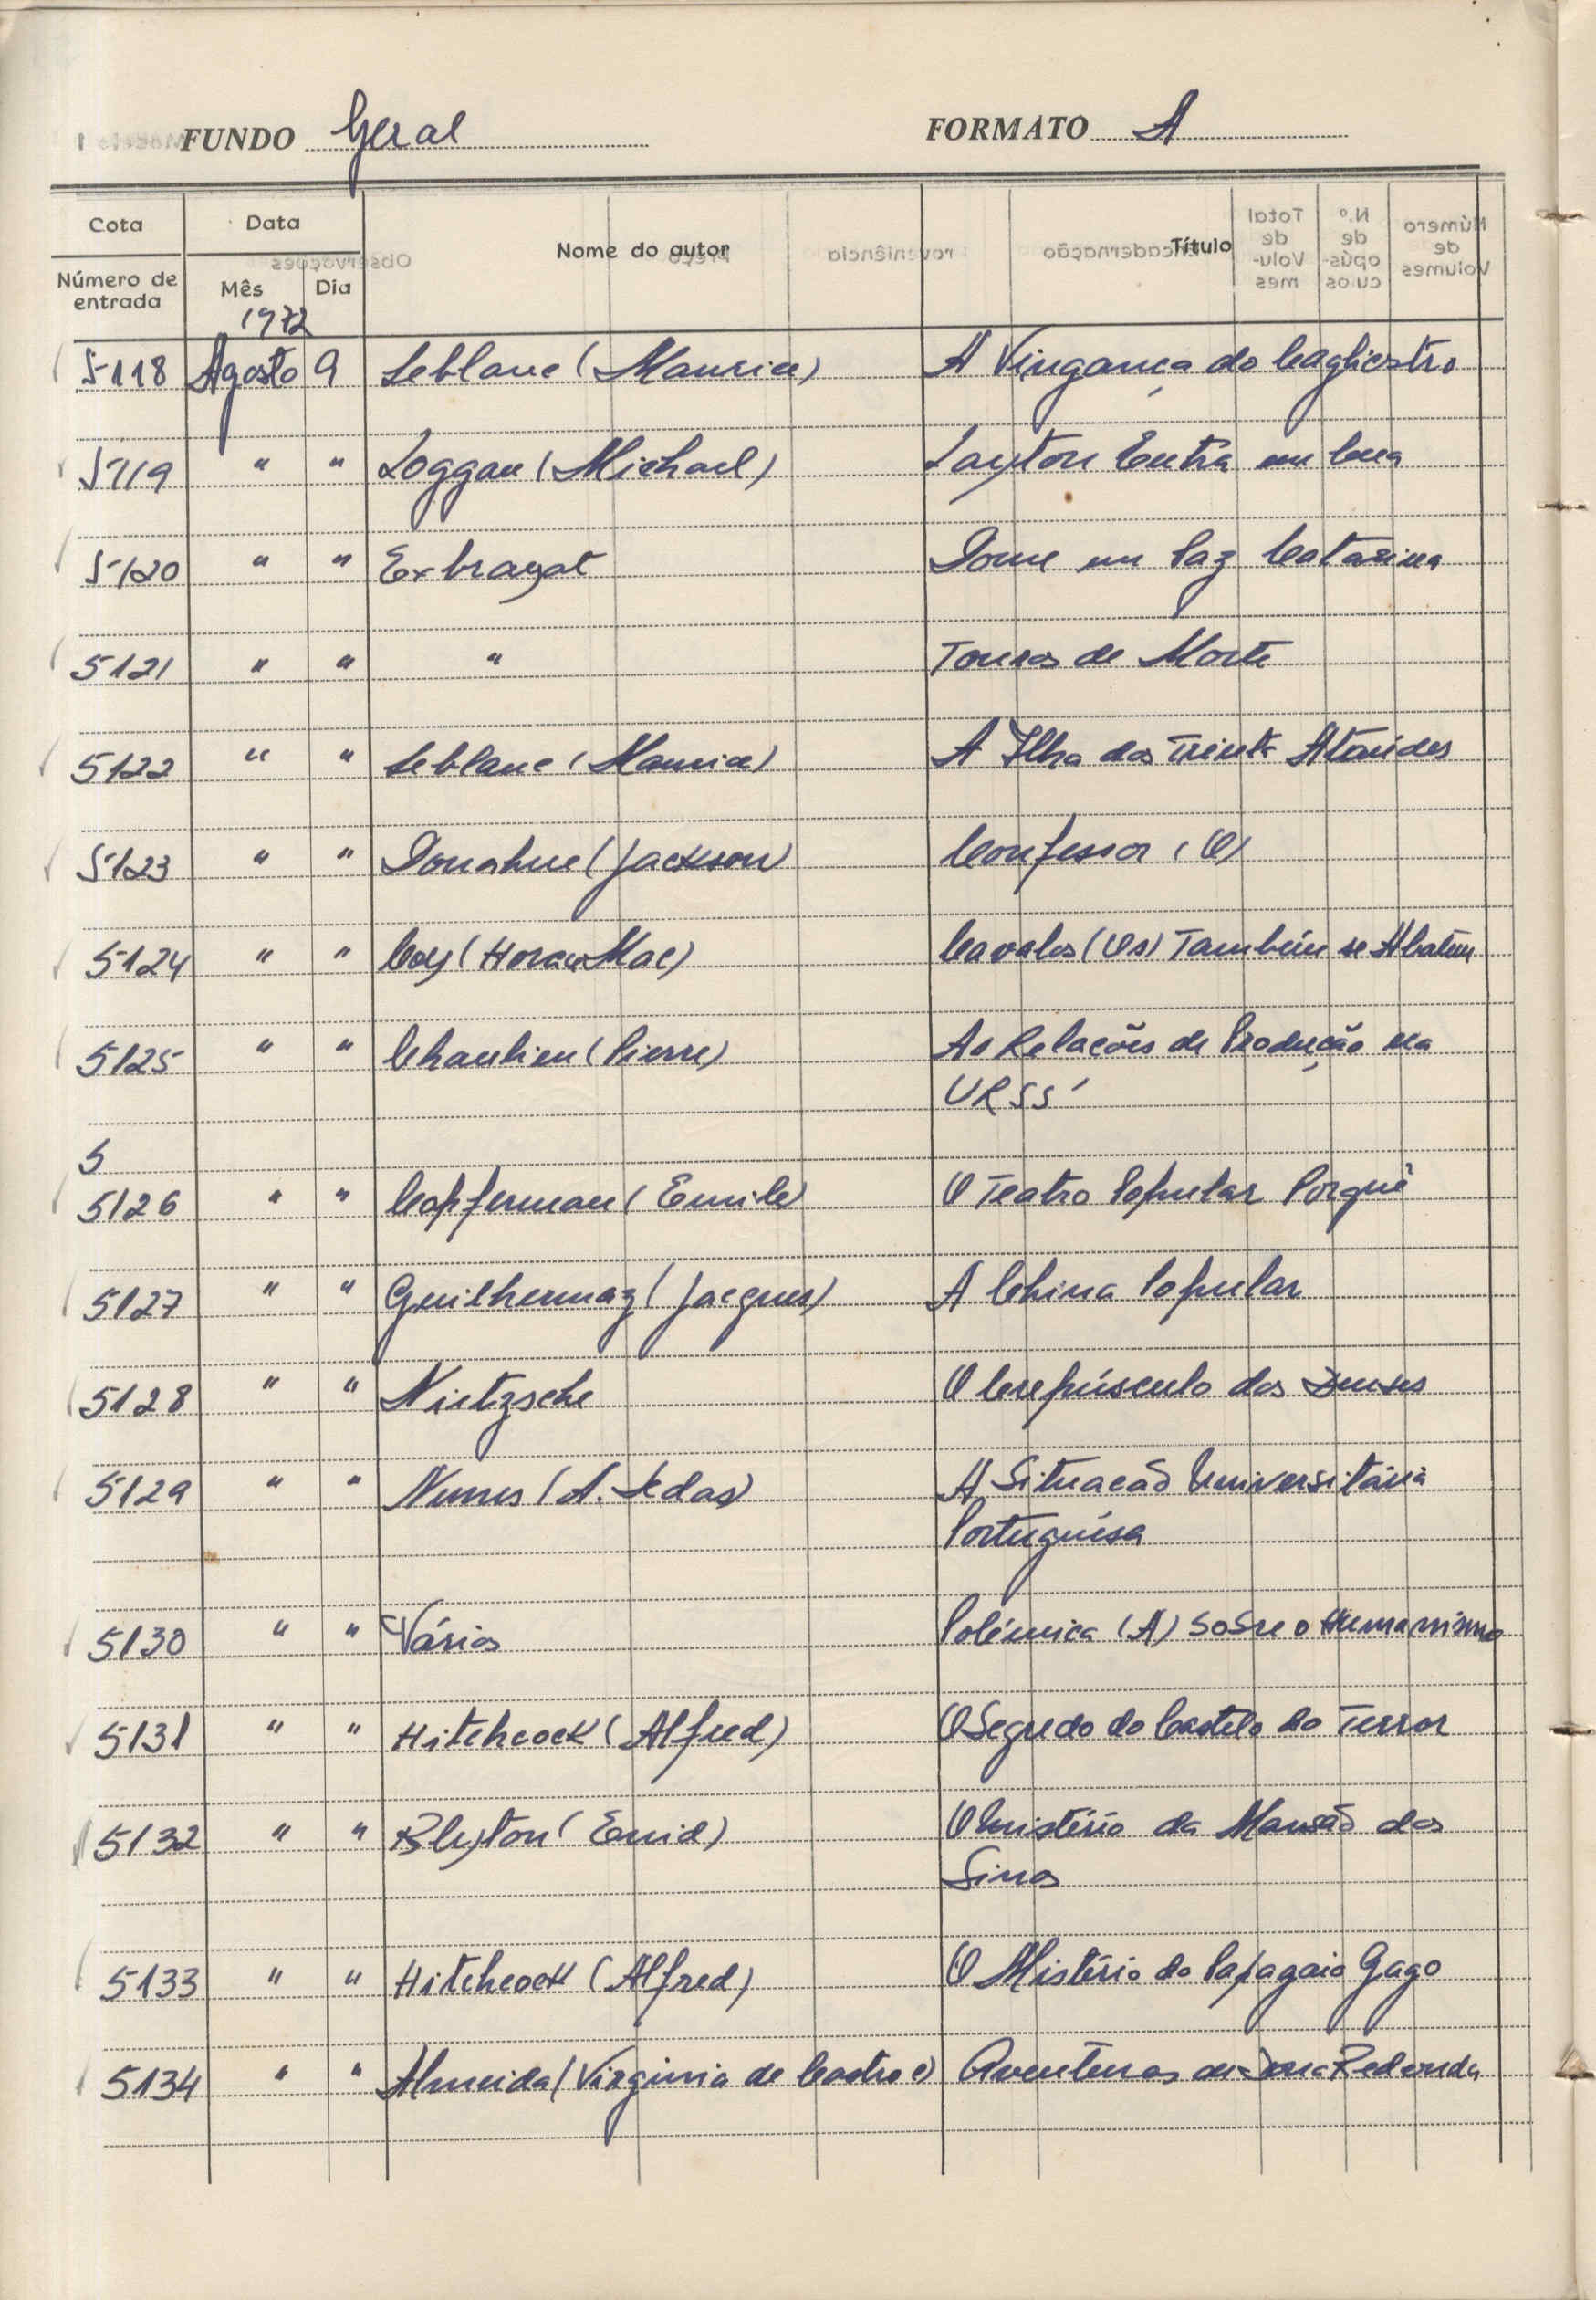 FUNDO Geral FORMATO A
Cota Data Nome do autor Título
Número de entrada Mês Dia
1972
5118 Agosto 9 Leblanc (Maurice) A Vingança do Cagliostro
5119 " " Loggan (Michael) Layton Entra em Cena
5120 " " Exbrayat Dorme em Paz Catarina
5121 " " " Touros de Morte
5122 " " Leblanc (Maurice) A Ilha dos Trinta Ataúdes
5123 " " Donahue (Jackson) Confessor (O)
5124 " " Coy (Horace Mac) Cavalos (Os) Também se Abatem
5125 " " Chaulieu (Pierre) As Relacões de Produção na
URSS
5
5126 " " Copferman (Emile) O Teatro Popular Porquê
5127 " " Guilhermaz (Jacques) A China Popular
5128 " " Nietzsche O Crepúsculo dos Deuses
5129 " " Nunes (A. Sedas) A Situacão Universitária
Portuguêsa
5130 " " Vários Polémica (A) Sobre o Humanismo
5131 " " Hitchcock (Alfred) O Segredo do Castelo do Terror
5132 " " Blyton (Enid) O mistério da Mansão dos
Sinos
5133 " " Hitchcock (Alfred) O Mistério do Papagaio Gago
5134 " " Almeida (Virginia de Castro e) Aventuras de Dona Redonda